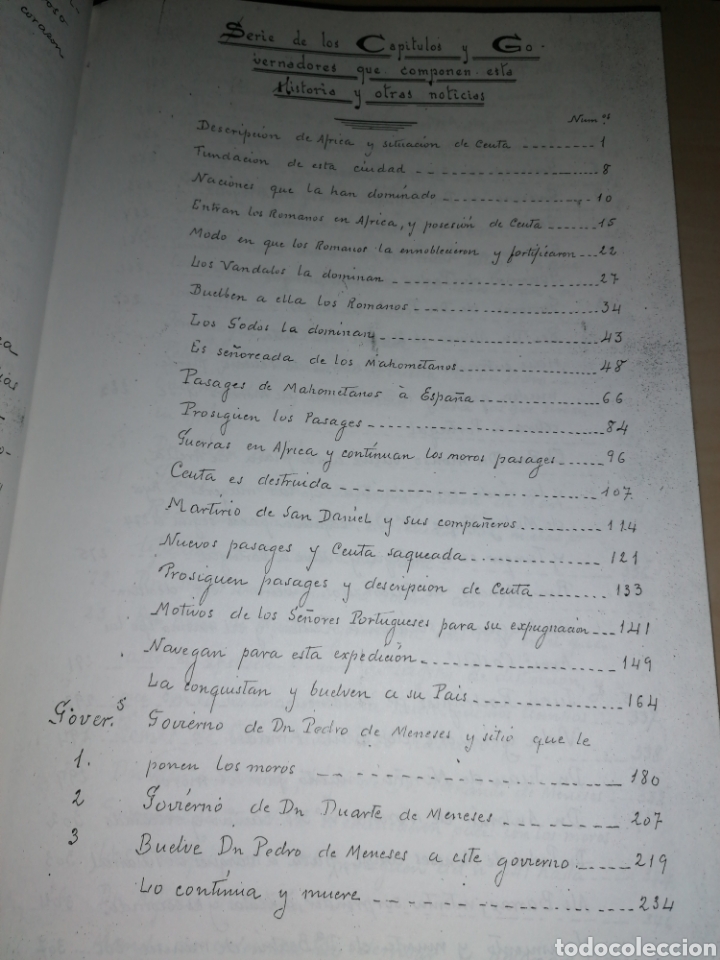 oroso
corason
Serie de los Capitulos y Go-
vernadores que componen esta
Historia y otras noticias
Num.os
Descripción de Africa y situación de Ceuta ---------- 1
Fundacion de esta ciudad ---------- 8
Naciones que la han dominado ---------- 10
Entran los Romanos en Africa, y posesión de Ceuta ---- 15
Modo en que los Romanos la ennoblecieron y fortificaron -- 22
Los Vandalos la dominan ---------- 27
Buelben a ella los Romanos ---------- 34
Los Godos la dominan ---------- 43
Es señoreada de los Mahometanos ---------- 48
Pasages de Mahometanos à España ---------- 66
Prosiguen los Pasages ---------- 84
Guerras en Africa y continuan los moros pasages ---- 96
Ceuta es destruida ---------- 107
Martirio de San Daniel y sus compañeros ---------- 114
Nuevos pasages y Ceuta saqueada ---------- 121
Prosiguen pasages y descripcion de Ceuta ---------- 133
Motivos de los Señores Portugueses para su expugnación --- 141
Navegan para esta expedición ---------- 149
La conquistan y buelven a su Pais ---------- 164
Gover.s Govierno de Dn Pedro de Meneses y sitio que le
1. ponen los moros ---------- 180
2 Govierno de Dn Duarte de Meneses ---------- 207
3 Buelve Dn Pedro de Meneses a este govierno ------ 219
Lo continua y muere ---------- 234
todocoleccion